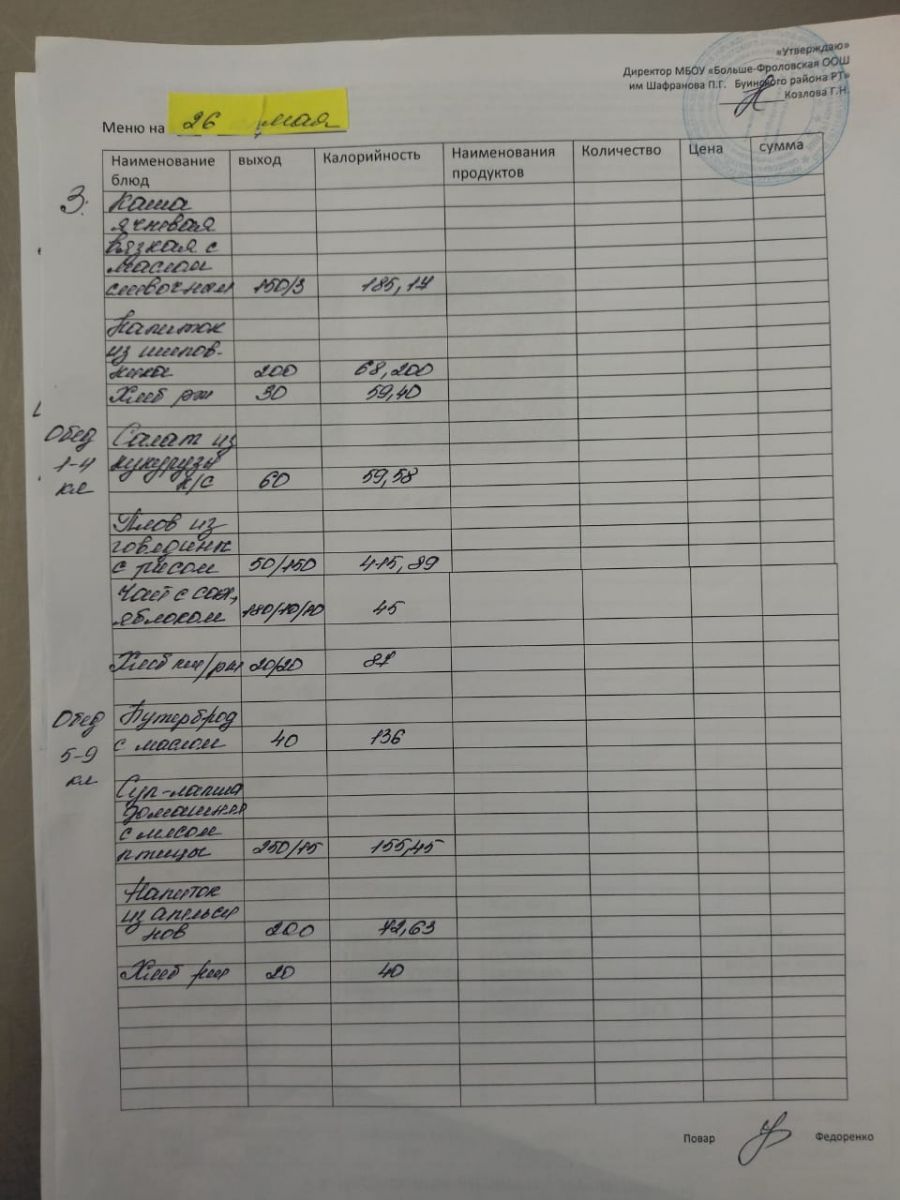 «Утверждаю»
Директор МБОУ «Больше-Фроловская ООШ
им Шафранова П.Г. Буинского района РТ»
Козлова Г.Н.
Меню на 26 мая
Наименование блюд выход Калорийность Наименования продуктов Количество Цена сумма
З.
Каша
ячневая
вязкая с
маслом
сливочным 150/3 185,17
Напиток
из шипов-
ника 200 68,200
Хлеб рж 30 59,40
Обед
1-4
кл
Салат из
кукурузы
к/с 60 59,58
Плов из
говядины
с рисом 50/150 415,89
Чай с сах,
яблоком 180/10/10 45
Хлеб пш/рж 20/20 87
Обед
5-9
кл
Бутерброд
с маслом 40 136
Суп-лапша
домашняя
с мясом
птицы 250/15 155,45
Напиток
из апельси
нов 200 72,63
Хлеб рж 20 40
Повар Федоренко